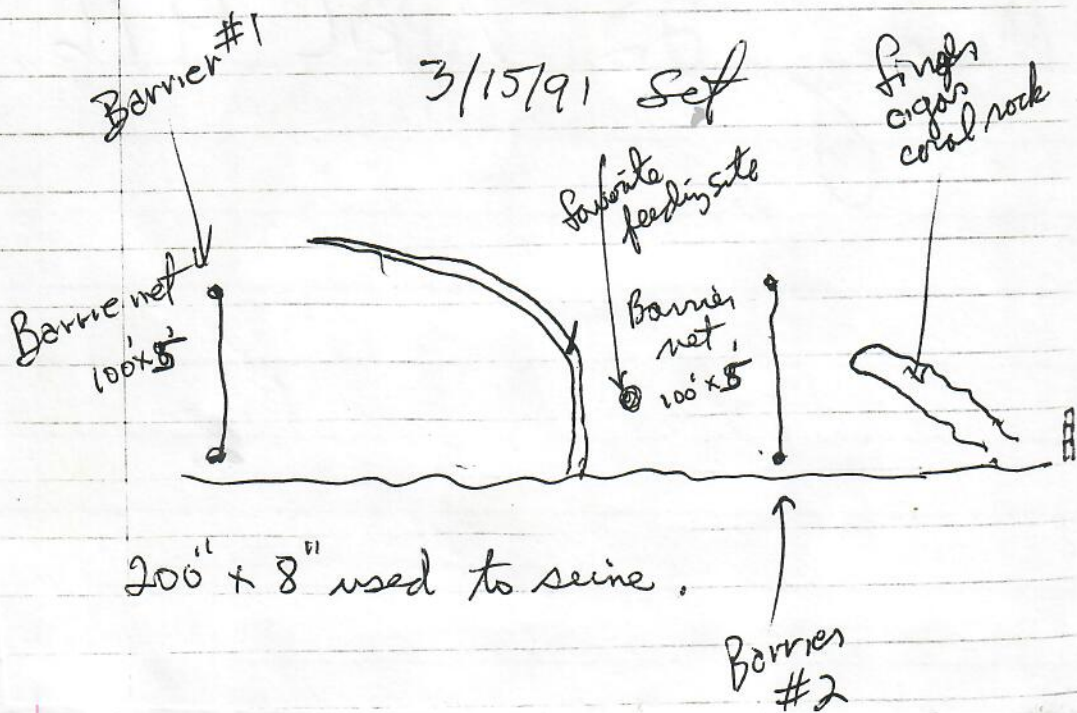 Barrier #1
3/15/91 Set
coral rock
favorite
feeding site
Barrier
net.
100' x 5
Barrie net
100' x 5'
200" x 8" used to seine.
Barrier
#2